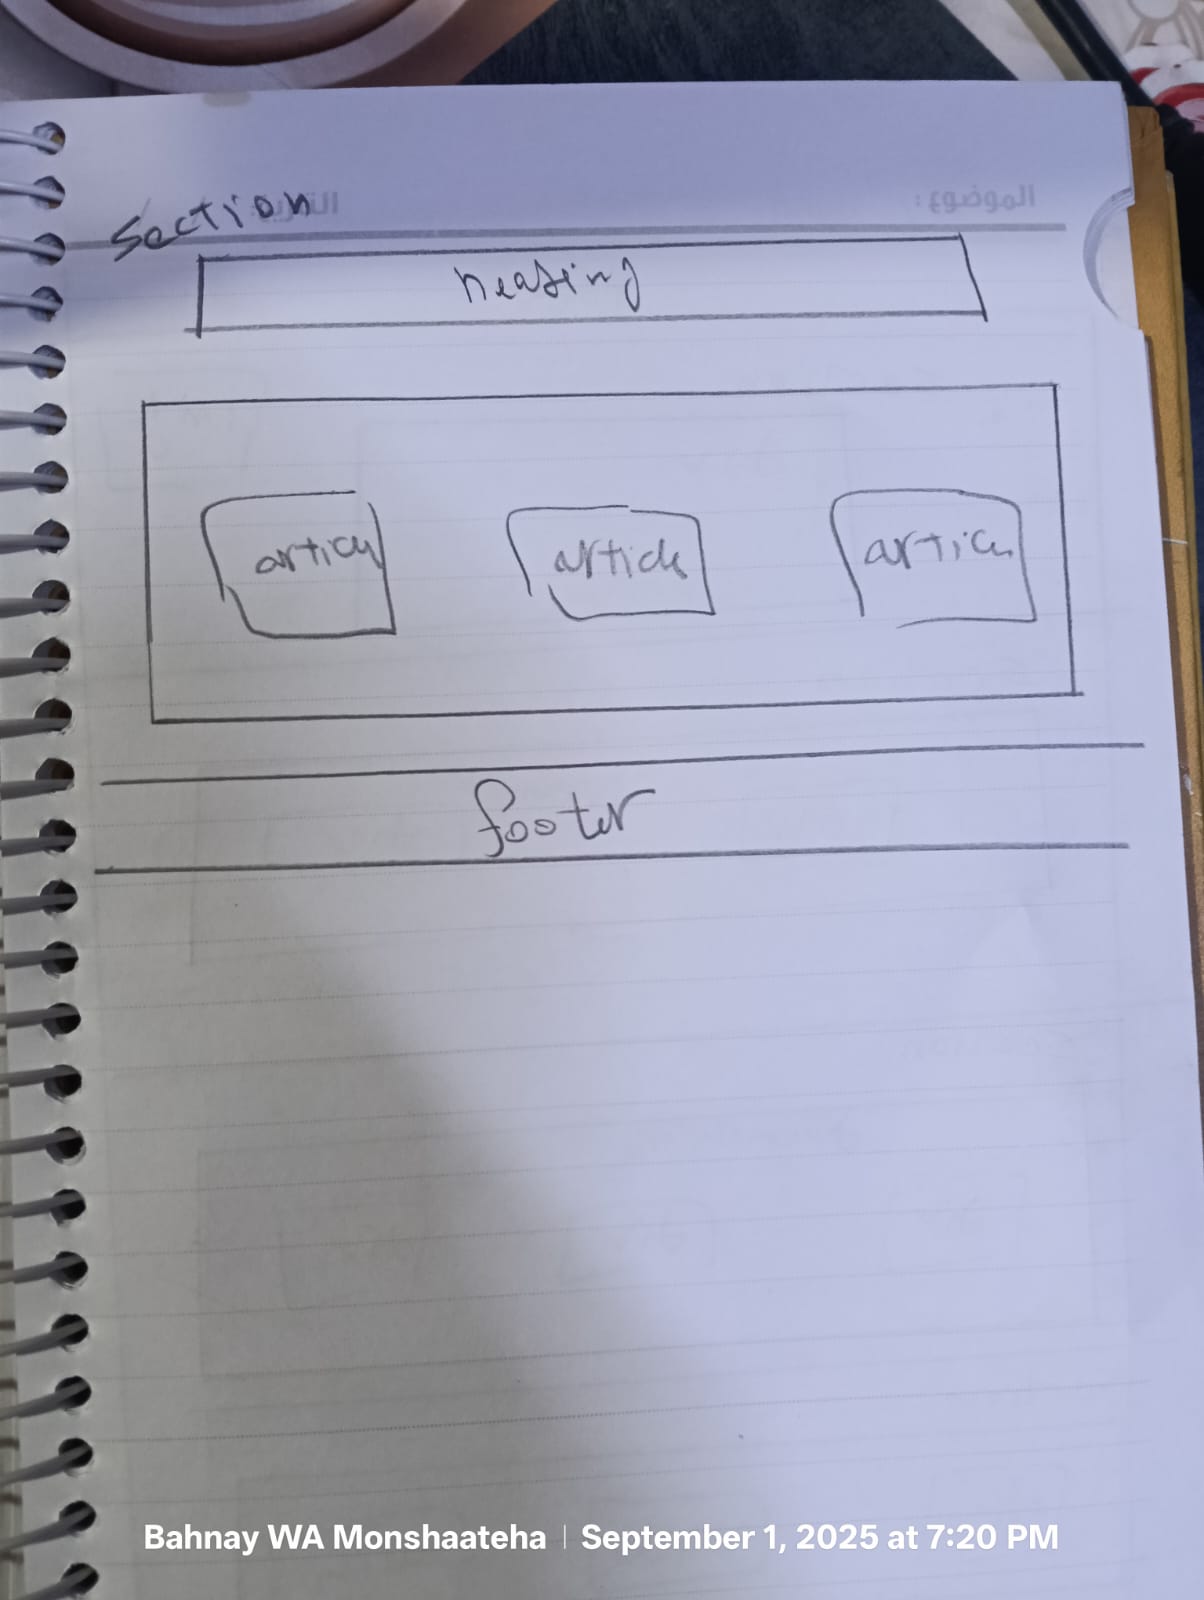 Section
الموضوع:
heading
article
article
article
footer
Bahnay WA Monshaateha | September 1, 2025 at 7:20 PM